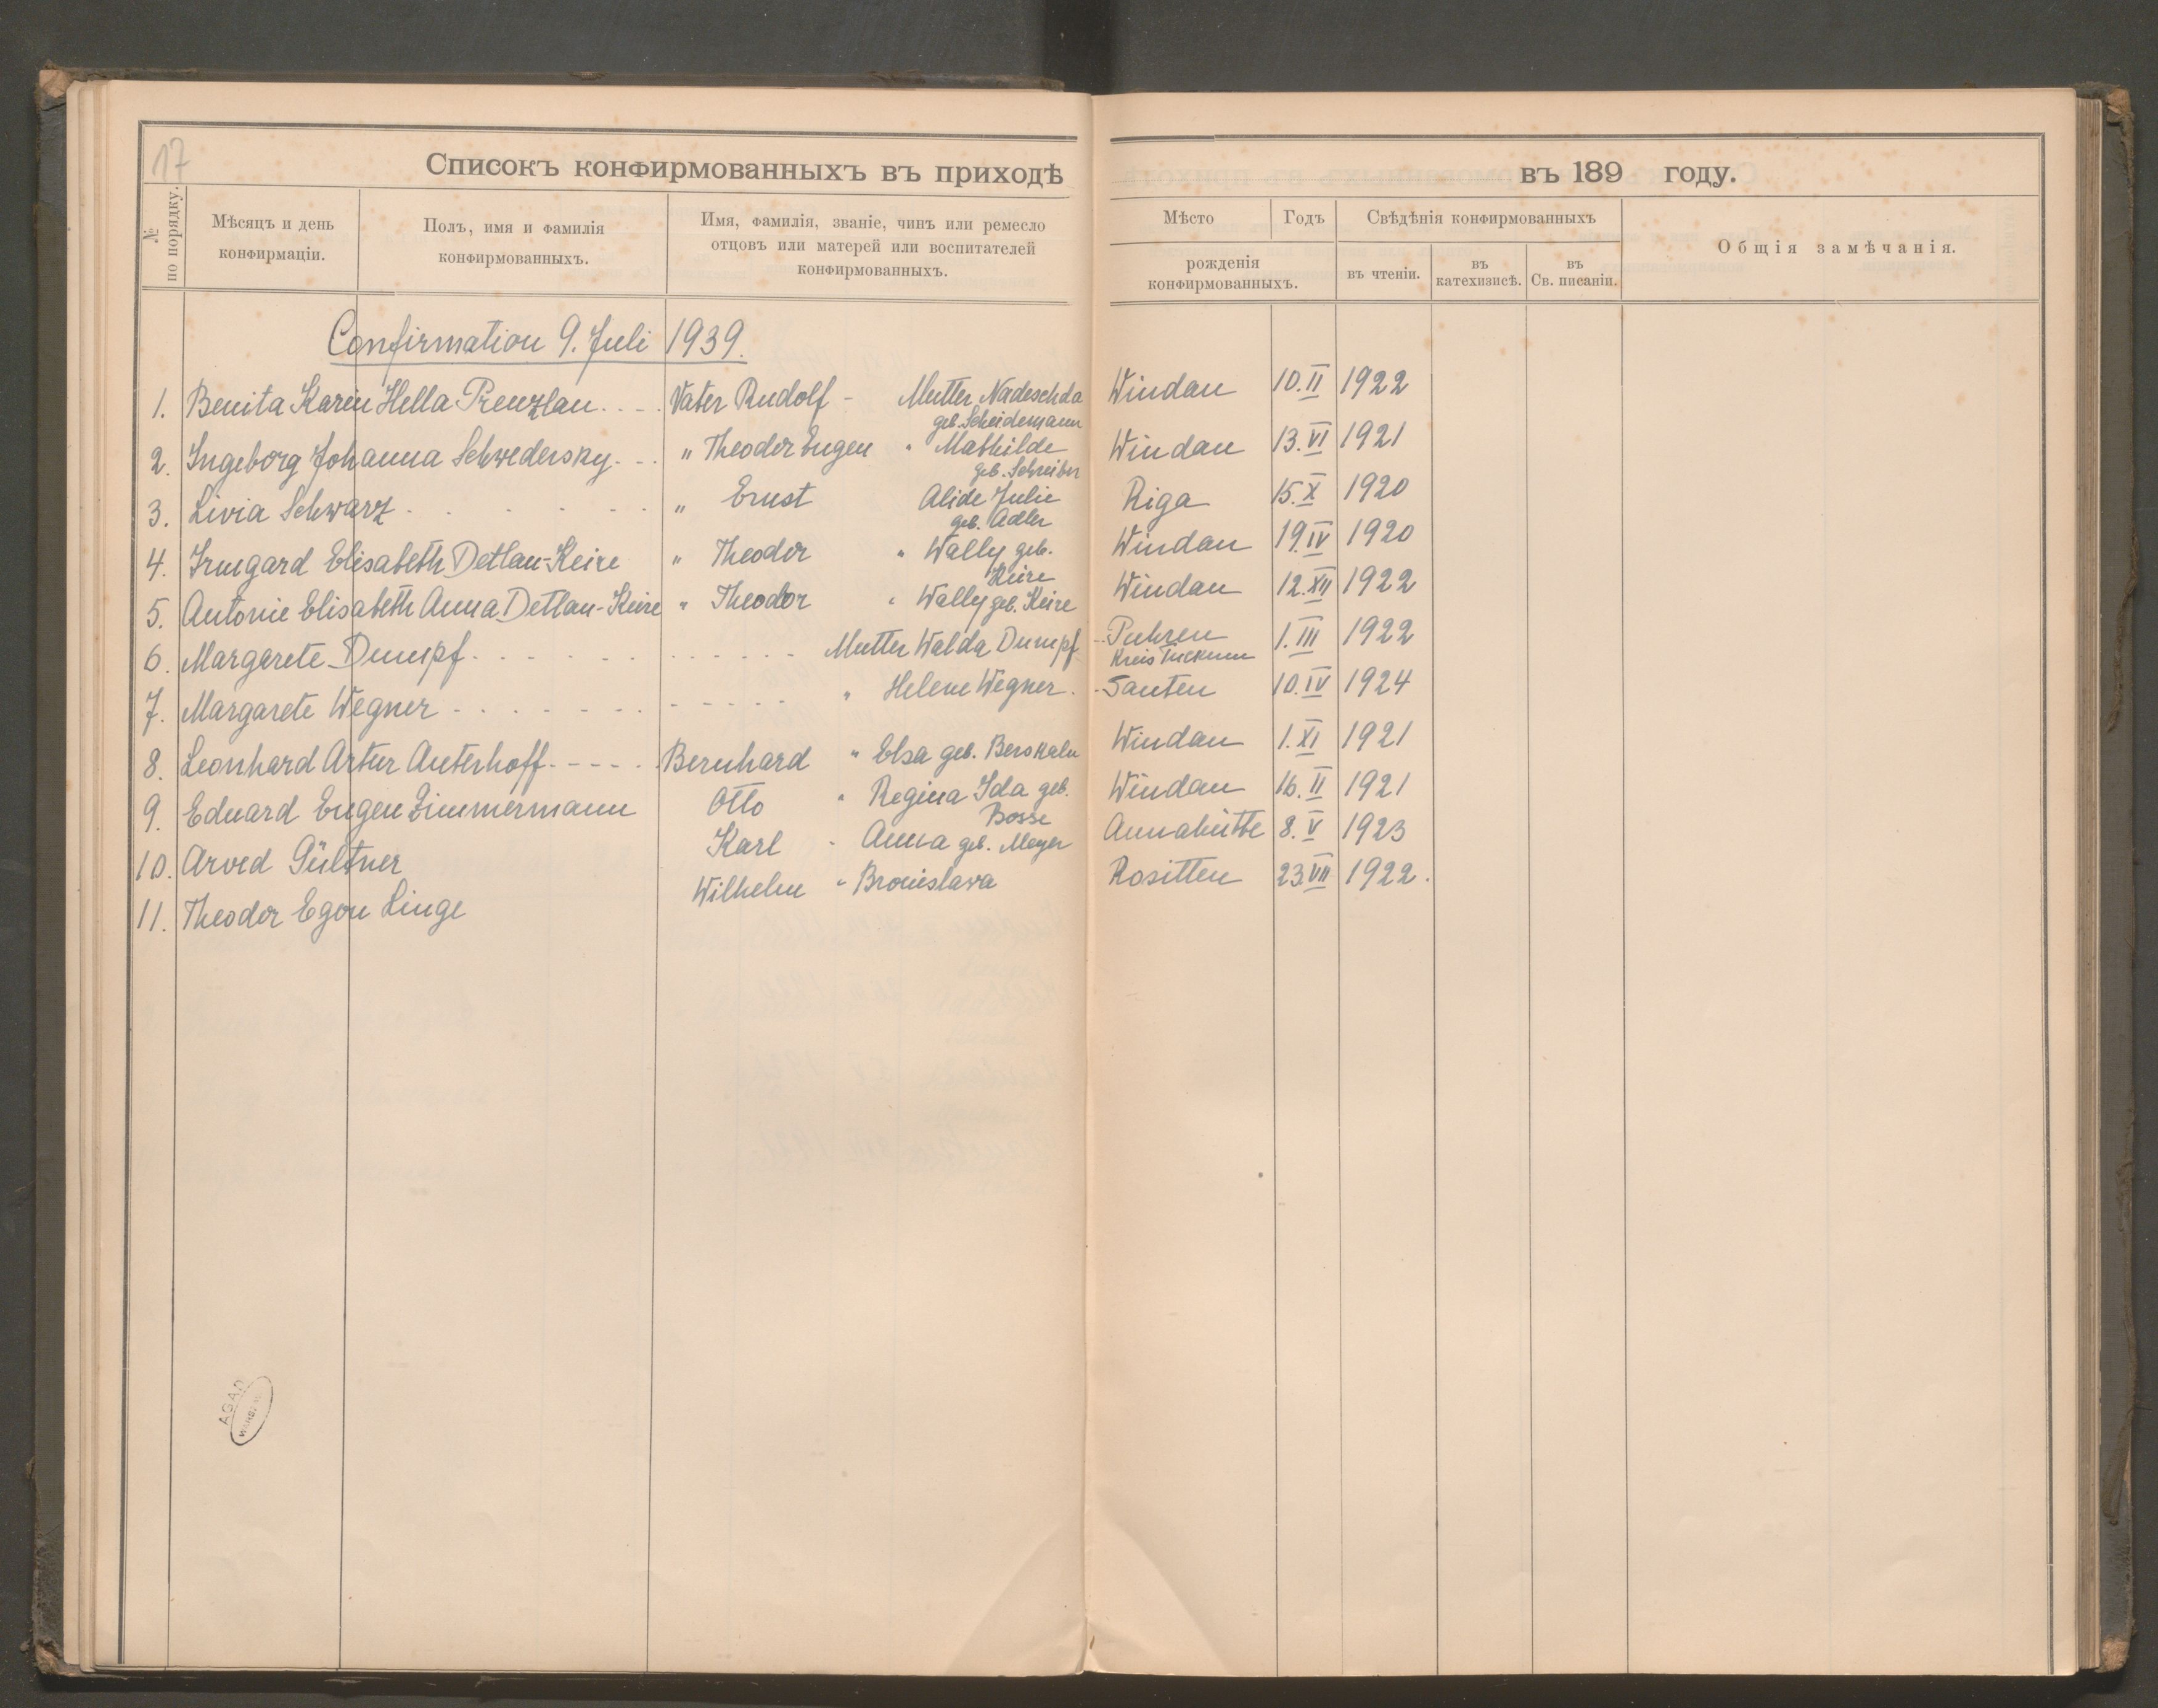 17
Списокъ конфирмованныхъ въ приходѣ въ 189 году.
№ по порядку.
Мѣсяцъ и день конфирмаціи.
Полъ, имя и фамилія конфирмованныхъ.
Имя, фамилія, званіе, чинъ или ремесло отцовъ или матерей или воспитателей конфирмованныхъ.
Мѣсто
Годъ
рожденія конфирмованныхъ.
Свѣдѣнія конфирмованныхъ
въ чтеніи.
въ катехизисѣ.
въ Св. писаніи.
Общія замѣчанія.
Confirmation 9. Juli 1939.
1. Benita Karin Hella Prenzlau.... Vater Rudolf - Mutter Nadeschda geb. Scheidemann Windau 10.II 1922
2. Ingeborg Johanna Schwedersky... " Theodor Eugen " Mathilde geb. Schreiber Windau 13.VI 1921
3. Livia Schwarz....... " Ernst Alide Julie geb. Adler Riga 15.X 1920
4. Irmgard Elisabeth Detlau-Keire " Theodor " Wally geb. Keire Windau 19.IV 1920
5. Antonie Elisabeth Anna Detlau-Keire " Theodor " Wally geb. Keire Windau 12.XII 1922
6. Margarete Dumpf........... Mutter Walda Dumpf Puhren Kreis Tuckum 1.III 1922
7. Margarete Wegner........... " Helene Wegner. Santen 10.IV 1924
8. Leonhard Artur Auterhoff----. Bernhard " Elsa geb. Berskaln Windau 1.XI 1921
9. Eduard Eugen Zimmermann Otto " Regina Ida geb. Bosse Windau 16.II 1921
10. Arved Gültner Karl " Anna geb. Meyer Annahütte 8.V 1923
11. Theodor Egon Linge Wilhelm " Bronislava Rositten 23.VII 1922.
AGAD